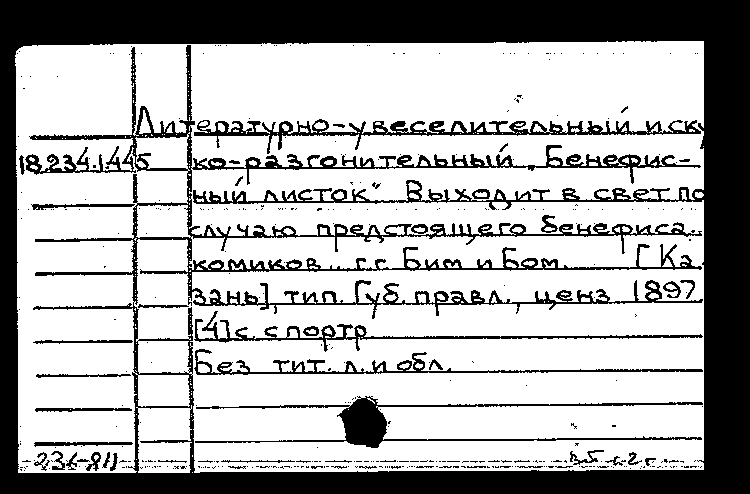 Литературно-увеселительный и ску
18.234.1.445 ко-разгонительный „Бенефис-
ный листок“ Выходит в свет по
случаю предстоящего бенефиса..
комиков.. г.г. Бим и Бом. [Ка
зань], тип. Губ. правл., ценз 1897
[4] с. с портр
Без тит. л. и обл.
236-811